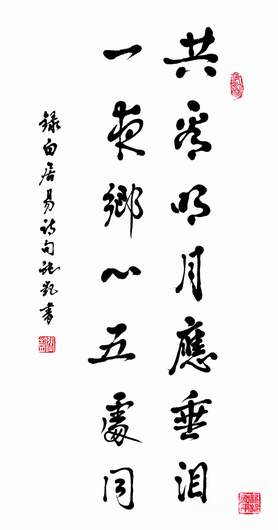 共看明月應垂泪
一夜鄉心五處同
錄白居易诗句